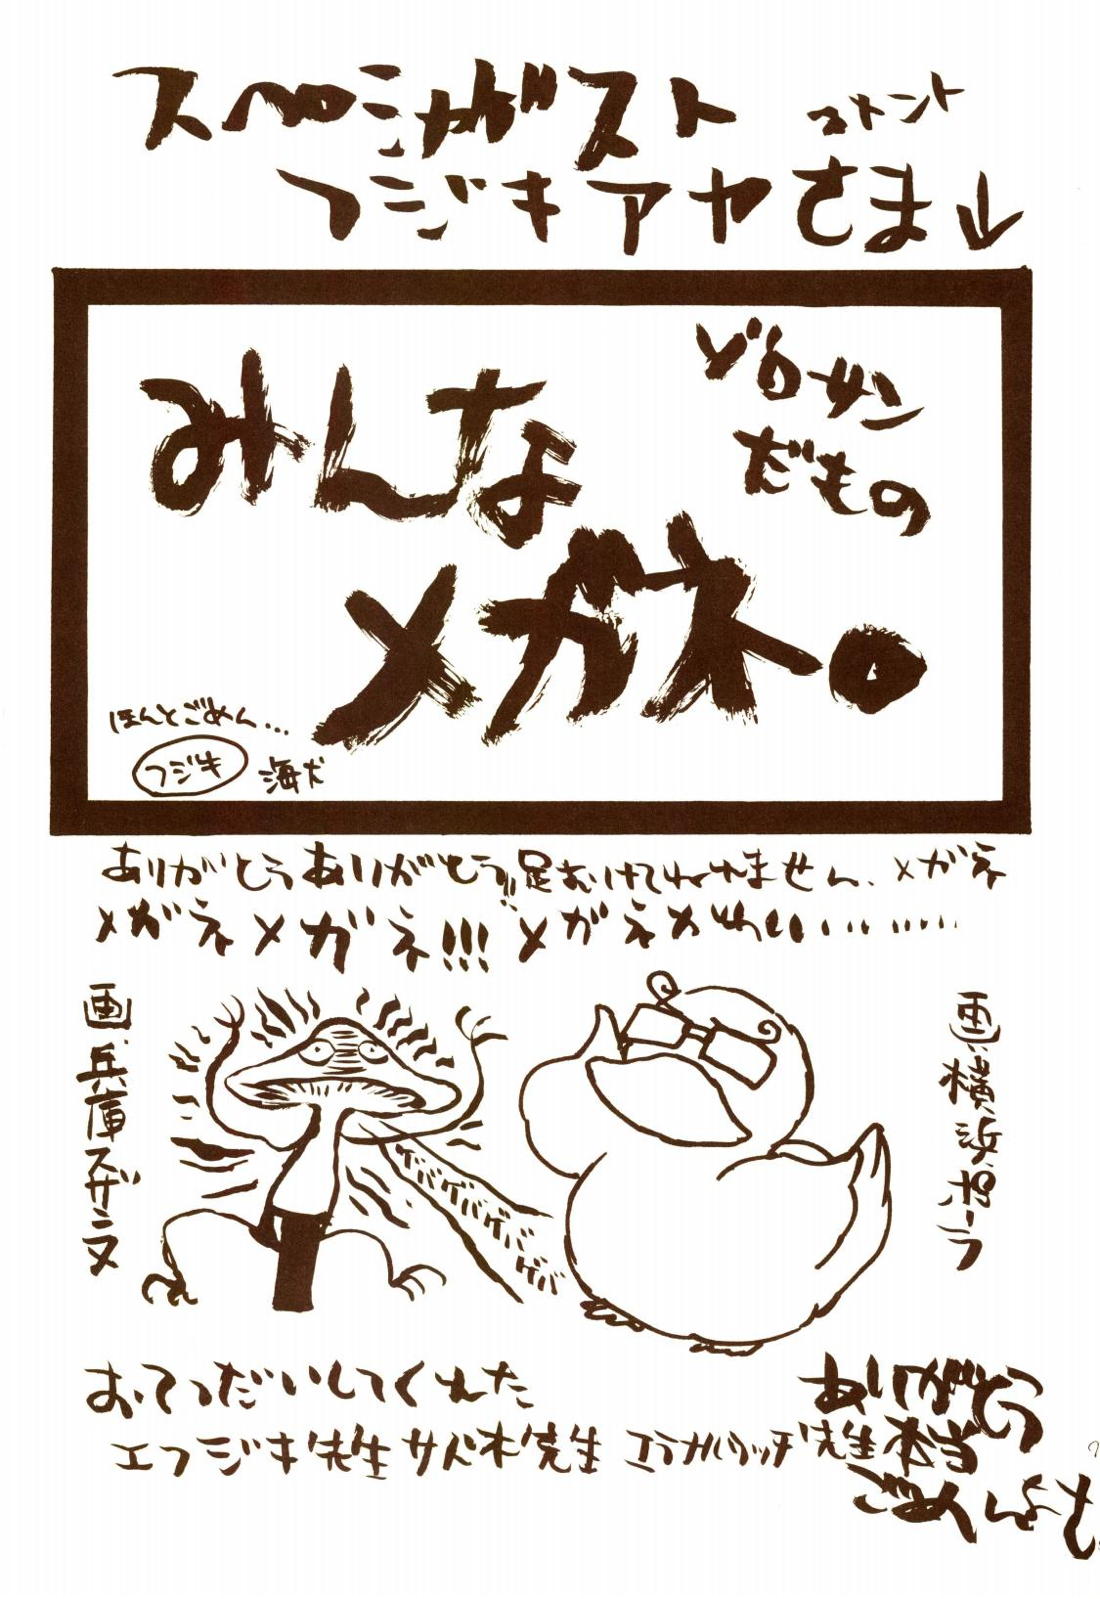 スペシャルゲスト コメント
フジキアヤさま↓
ゾロサン
だもの
みんな
メガネ。
ほんとごめん…
フジキ 海犬
ありがとうありがとう!!足むけてねれません、メガネ
メガネメガネ!!!メガネかわいい………
画、兵庫スザンヌ
画、横浜ポーラ
ゲバゲバゲバゲバ
おてつだいしてくれた
エフジキ先生 サド木先生 先生 本当
ありがとう
ごめんよも